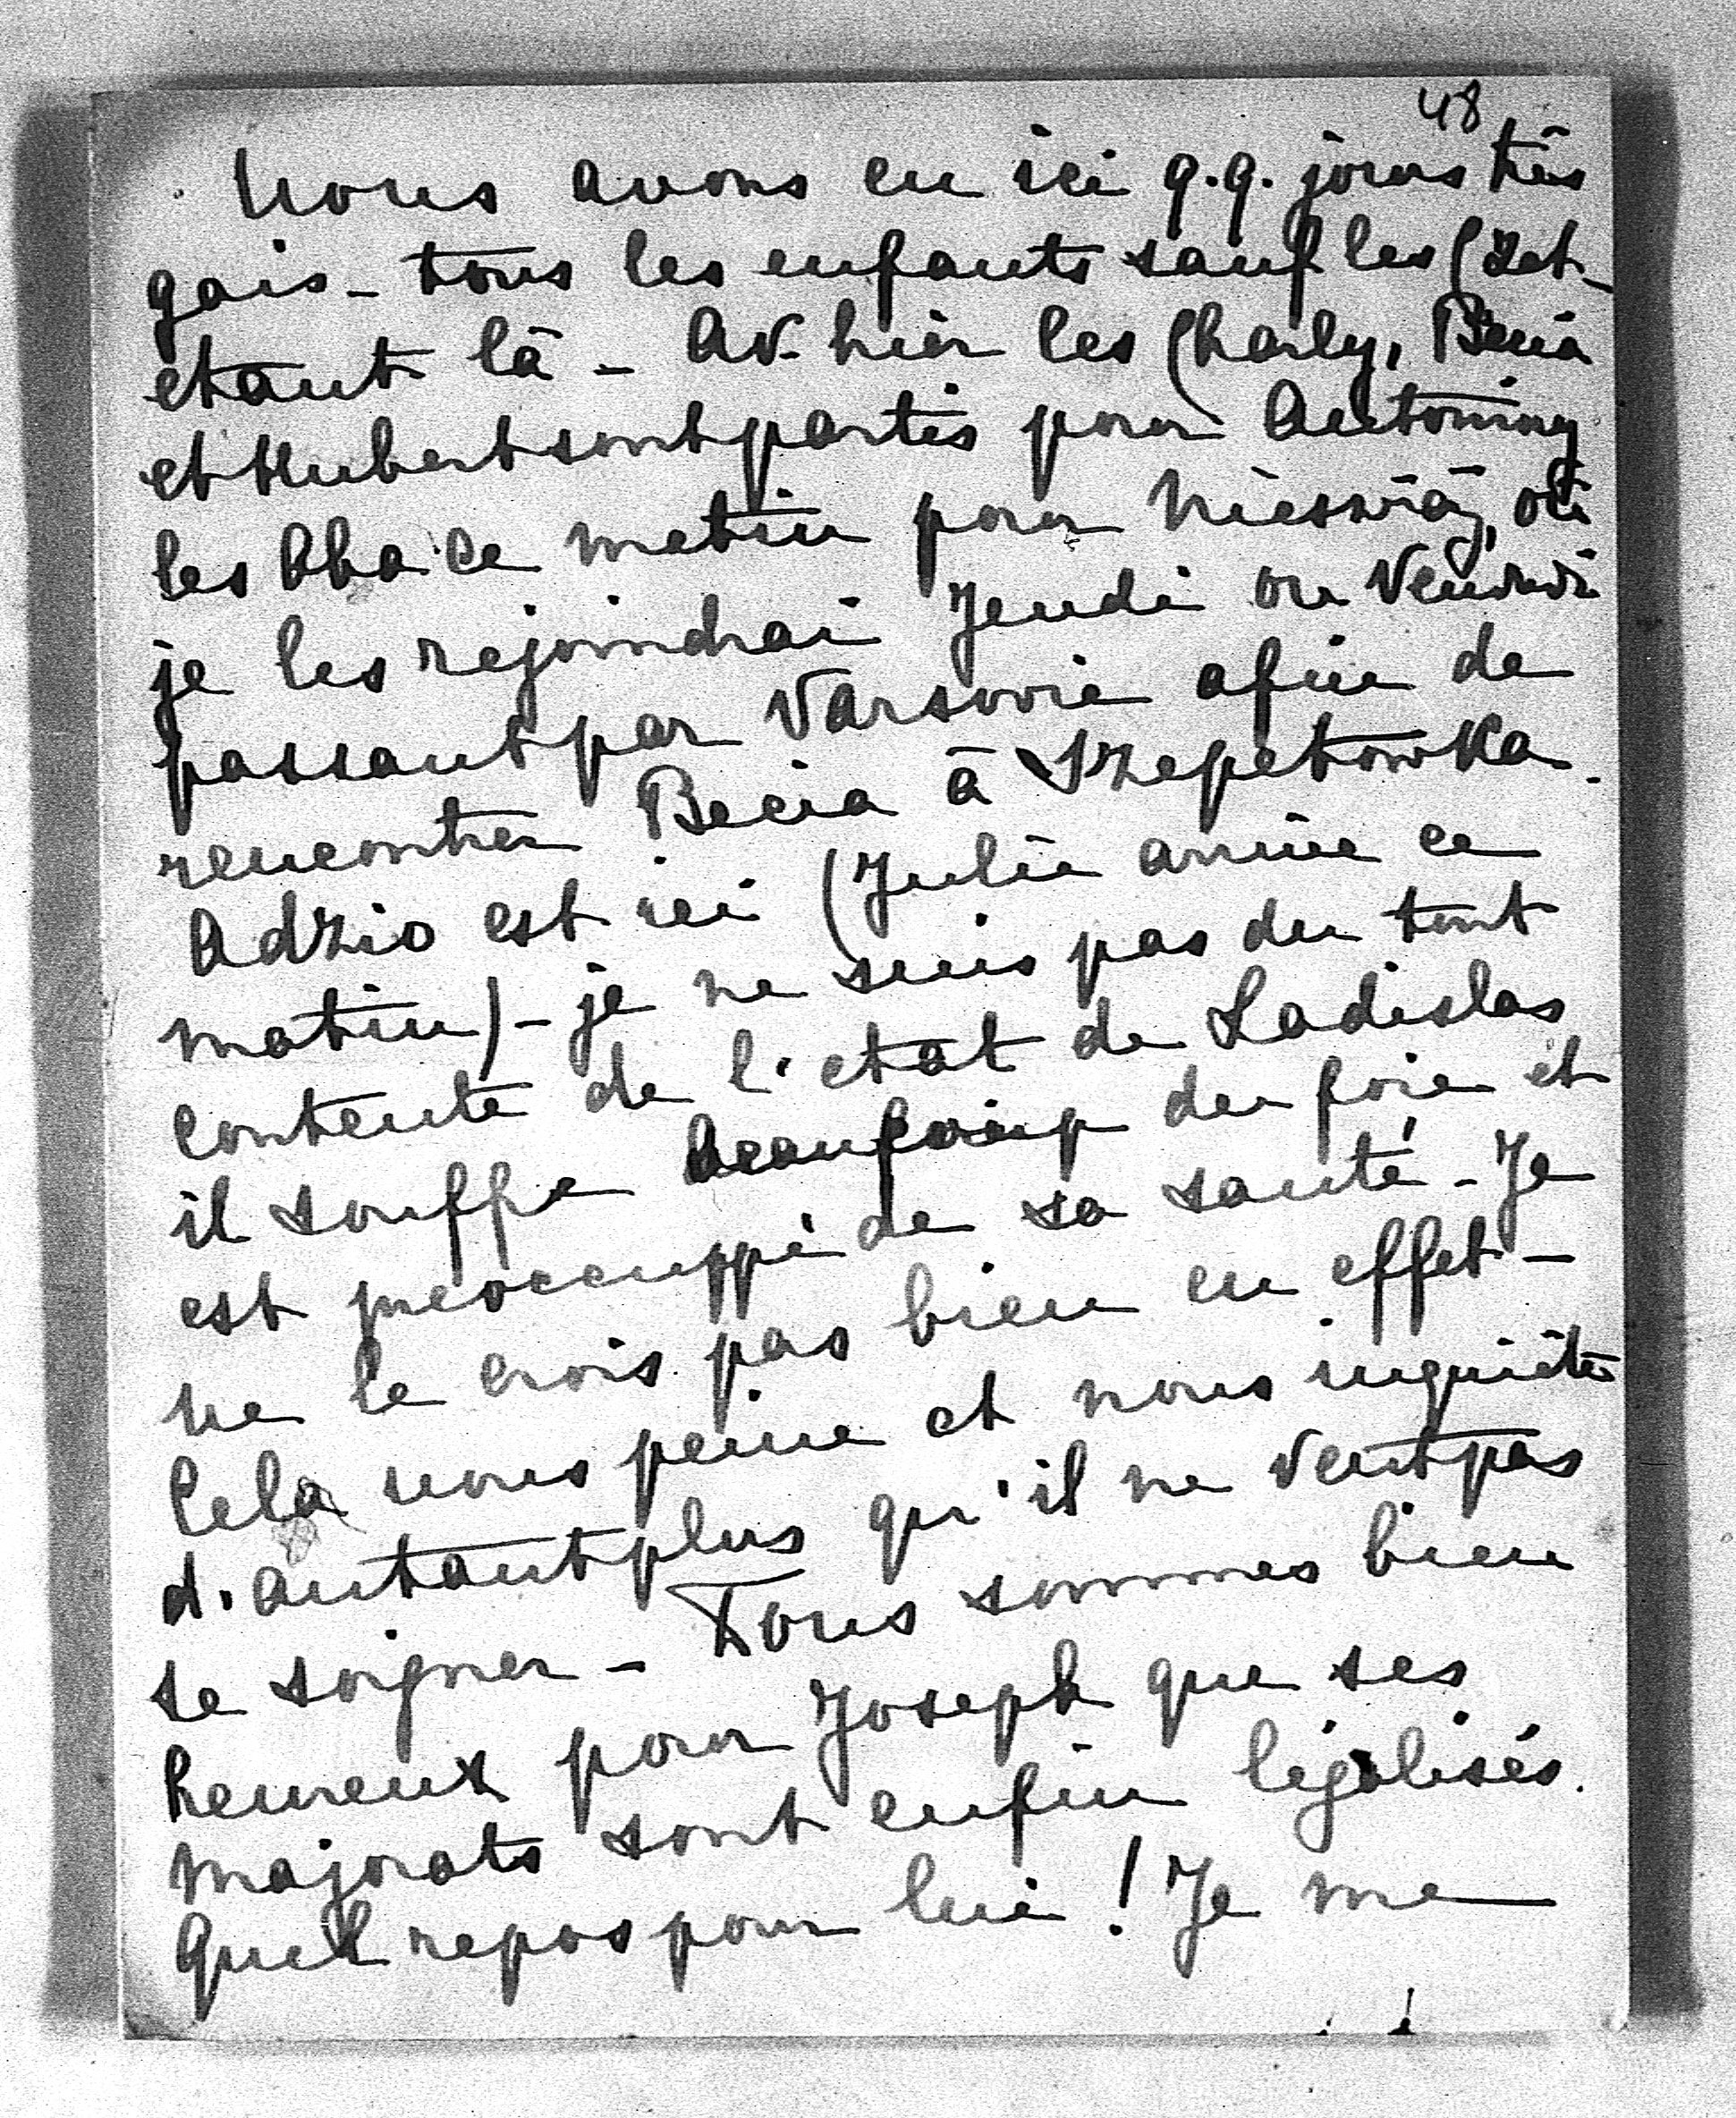 48
Nous avons eu ici q.q. jours très
gais - tous les enfants sauf les
etant là - Av. hier les Charly, Becia
et Hubert sont partis pour Antoniny
les Aba ce matin pour Nieswiez, où
je les rejoindrai Jeudi ou Vendredi
passant par Varsovie afin de
rencontrer Becia à Szepetowka.
Adzio est ici (Julie arrive ce
matin) - je ne suis pas du tout
contente de l'etat de Ladislas
il souffre beaucoup du foie et
est préoccuppé de sa santé - Je
ne le crois pas bien en effet -
Cela nous peine et nous inquiète
d'autant plus qu'il ne veut pas
se soigner - Tous sommes bien
heureux pour Joseph que ses
majorats sont enfin légalisés.
Quel repos pour lui ! Je me